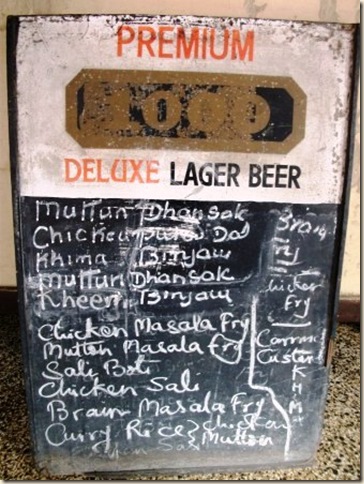 PREMIUM
DELUXE LAGER BEER
Muttun Dhansak
Chicken Pulav Dal
Khima Binjaw
Muttun Dhansak
Kheema Binjaw
Chicken Masala Fry
Mutton Masala Fry
Sali Boti
Chicken Sali
Brain Masala Fry
Curry Rice Chicken
Mutton
Brain
Fry
Chicken
Fry
Custard
K
H
M